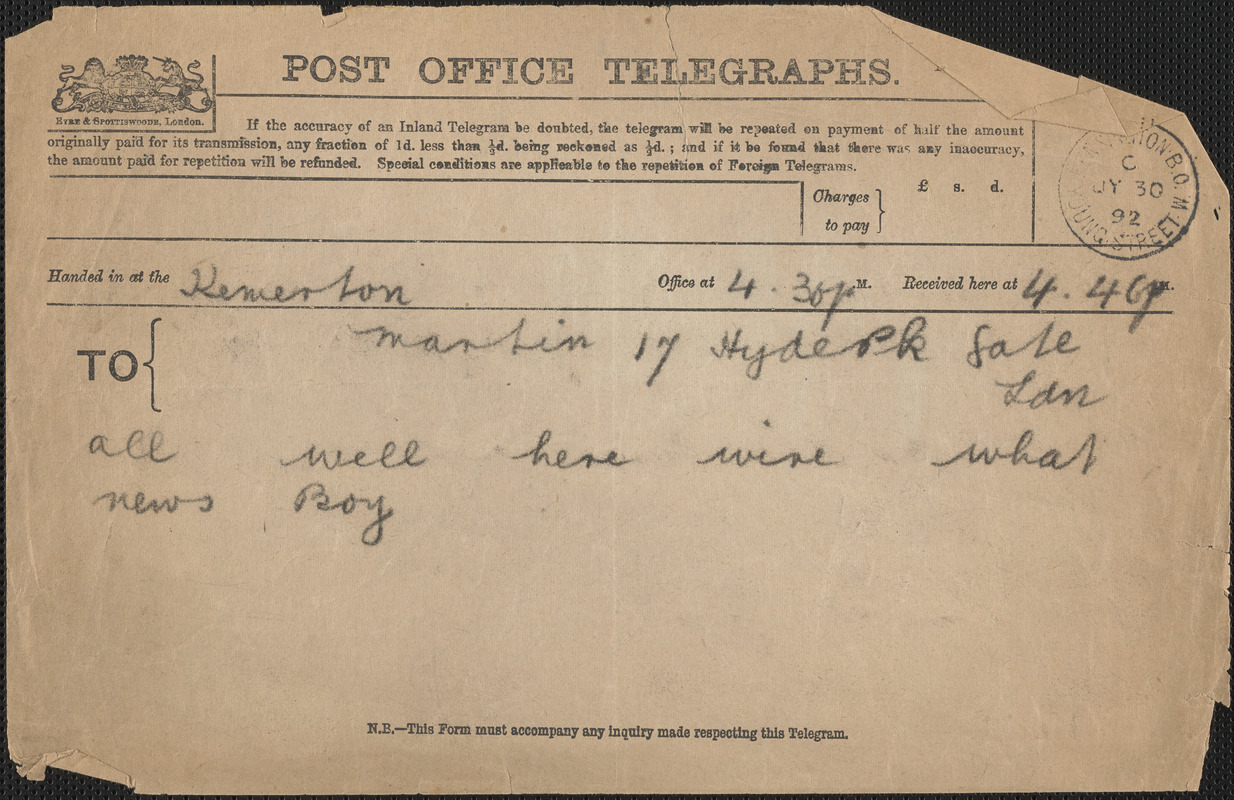 POST OFFICE TELEGRAPHS.
EYRE & SPOTTISWOODE, LONDON.
If the accuracy of an Inland Telegram be doubted, the telegram will be repeated on payment of half the amount
originally paid for its transmission, any fraction of 1d. less than ½d. being reckoned as ½d.; and if it be found that there was any inaccuracy,
the amount paid for repetition will be refunded. Special conditions are applicable to the repetition of Foreign Telegrams.
Charges to pay } £ s. d.
C
JY 30
92
STREET
B.O.
Handed in at the Kemerton Office at 4.30p M. Received here at 4.46p M.
TO { Martin 17 Hyde Pk Gate
Ldn
all well here wire what
news Boy
N.B.—This Form must accompany any inquiry made respecting this Telegram.